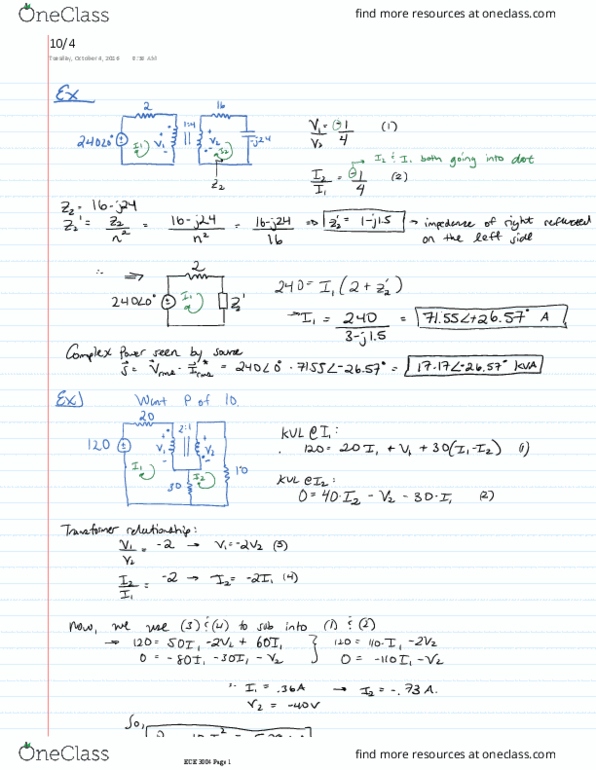 OneClass
find more resources at oneclass.com
10/4
Tuesday, October 4, 2016 9:30 AM
Ex
2
1:4
16
240∠0°
I₁
V₁
V₂
I₂
-j24
Z₂
V₁/V₂ = ⊖1/4 (1)
→ I₂ & I₁ both going into dot
I₂/I₁ = ⊖1/4 (2)
Z₂ = 16-j24
Z₂' = Z₂/n² = 16-j24/n² = 16-j24/16 ⇒ Z₂' = 1-j1.5 → impedence of right reflected
on the left side
∴ ⇒
2
240∠0°
I₁
Z₂'
240 = I₁(2 + Z₂')
→ I₁ = 240/3-j1.5 = 71.55∠+26.57° A
Complex Power seen by source
S = Vrms · I*rms = 240∠0° · 71.55∠-26.57° = 17.17∠-26.57° kVA
Ex) Want P of 10.
20
2:1
120
V₁
V₂
I₁
I₂
30
10
KVL @ I₁:
120 = 20I₁ + V₁ + 30(I₁-I₂) (1)
KVL @ I₂:
0 = 40·I₂ - V₂ - 30·I₁ (2)
Transformer relationship:
V₁/V₂ = -2 → V₁ = -2V₂ (3)
I₂/I₁ = -2 → I₂ = -2I₁ (4)
Now, we use (3) & (4) to sub into (1) & (2)
→ 120 = 50I₁ - 2V₂ + 60I₁ } 120 = 110·I₁ - 2V₂
0 = -80I₁ - 30I₁ - V₂ } 0 = -110I₁ - V₂
∴ I₁ = .36A → I₂ = -.73 A.
V₂ = -40V
So,
OneClass
ECE 3004 Page 1
find more resources at oneclass.com